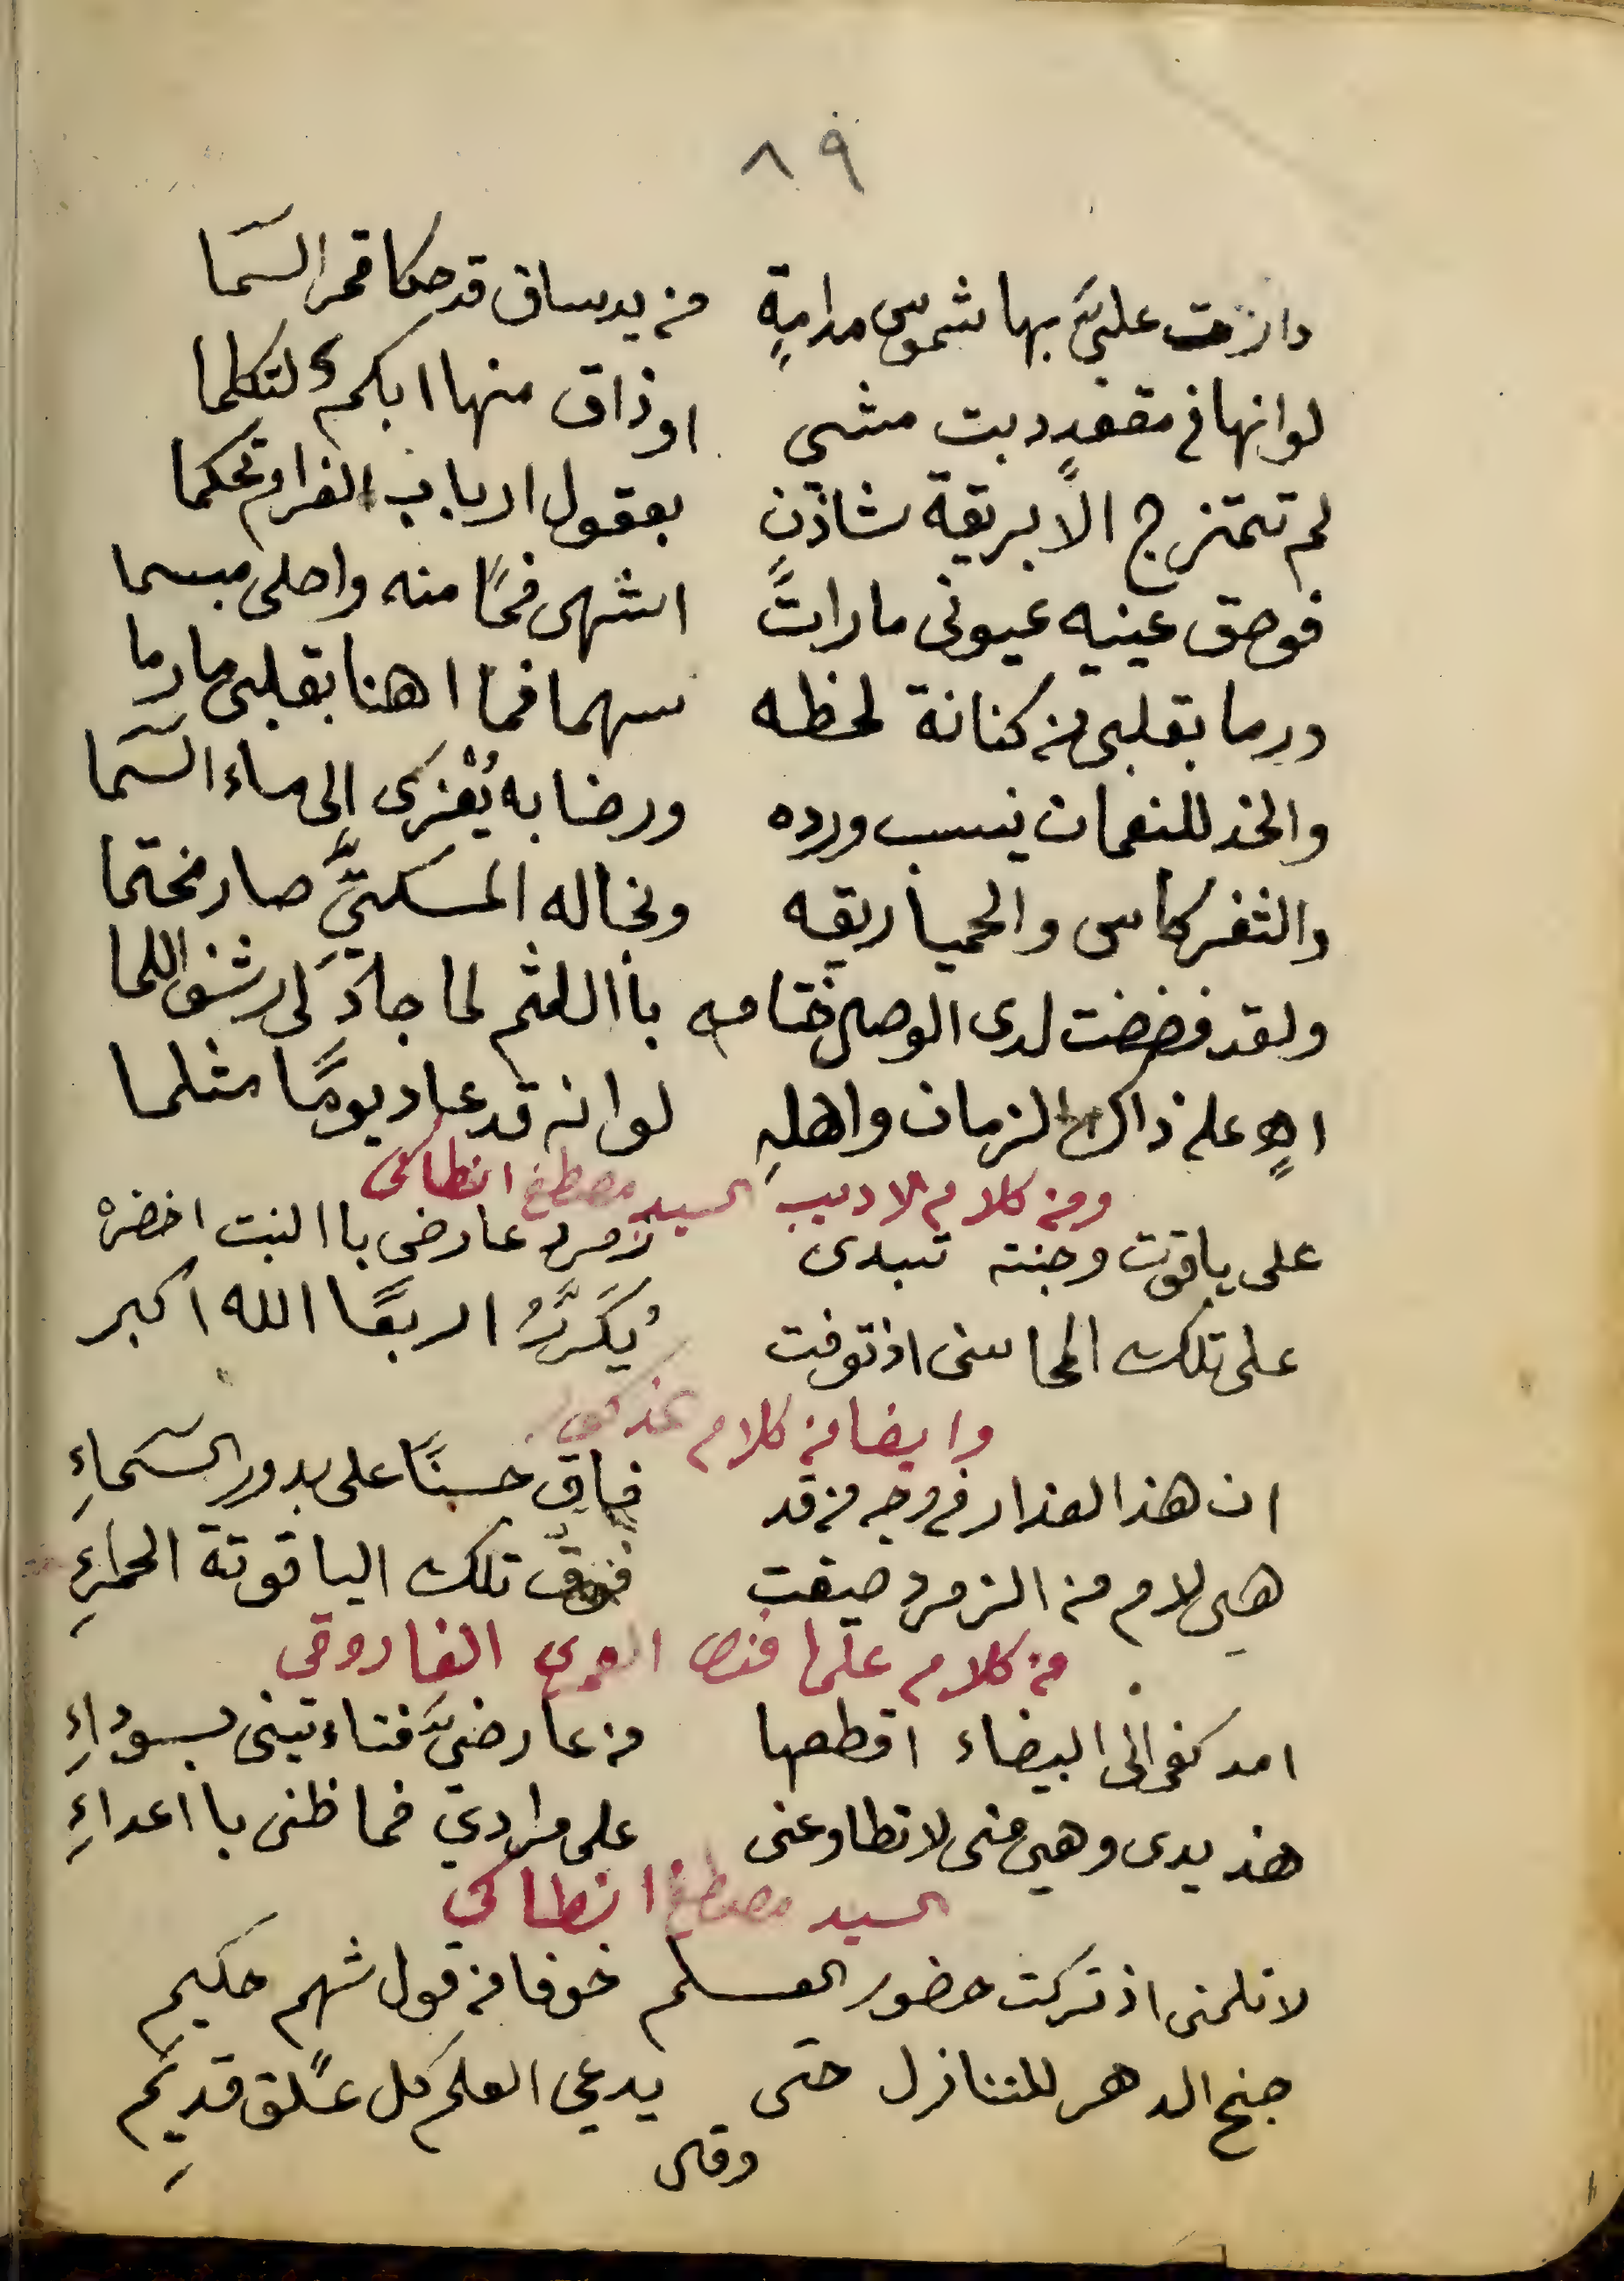 ٨٩
دارت عليّ بها شموس مدامةٍ من يد ساق قد حكا قمر السّما
لو انها في مقعدٍ دبت مشى او ذاق منها ابكمٌ لتكلما
لم تمتزج الا بريقة شاذنٍ بعقول ارباب الغرام تحكما
فوحق عينيه عيوني ما رات اشهى فمًا منه واحلى مبسما
ورما بقلبي من كنانة لحظه سهما فما اهنا بقلبي ما رما
والخد للنعمان ينسب ورده ورضابه يُعْزَى الى ماء السّما
والثغر كاسى والحميا ريقه وبخاله المسكيِّ صار مختما
ولقد فضضت لدى الوصل ختامه باللثم لما جادَ لى رشف اللما
اهٍ على ذاك الزمان واهلهِ لو انه قد عاد يومًا مثلما
ومن كلام الاديب السيد مصطفى انطاكى
على ياقوت وجنته تبدى زمرد عارضى باالنبت اخضرْ
على تلك المحاسن اذ توفت يُكَرَّرُ اربعًا الله اكبر
وايضا من كلام
ان هذا العذار في وجه من قد فاق حسنًا على بدور السّماءِ
هي لام من الزمرد صيغت فوق تلك الياقوتة الحمراءِ
من كلام الفاروقى
امد كفى الى البيضاء اقطعها من عارضيّ فتاءتينى بسوداءِ
هذ يدى وهي منى لا تطاوعنى على مرادي فما ظنى بااعداءِ
السيد مصطفى انطاكى
لا تلمنى اذ تركت حضور العلم خوفا من قول شهم حكيم
جنح الدهر للتنازل حتى يدعي العلم كل علق قديمِ
وقال